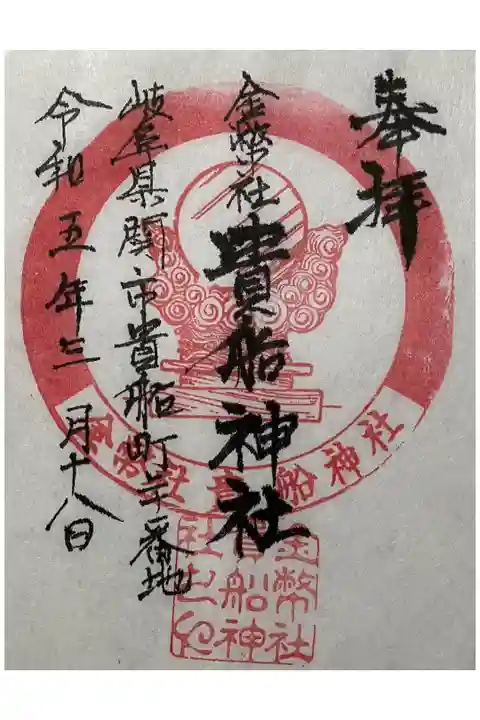 奉拝
金幣社
貴船神社
岐阜県関市貴船町二十番地
令和五年三月十八日
金幣社貴船神社
金幣社
貴船神
社之印